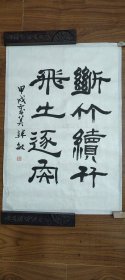 斷竹續竹
飛土逐肉
甲戌